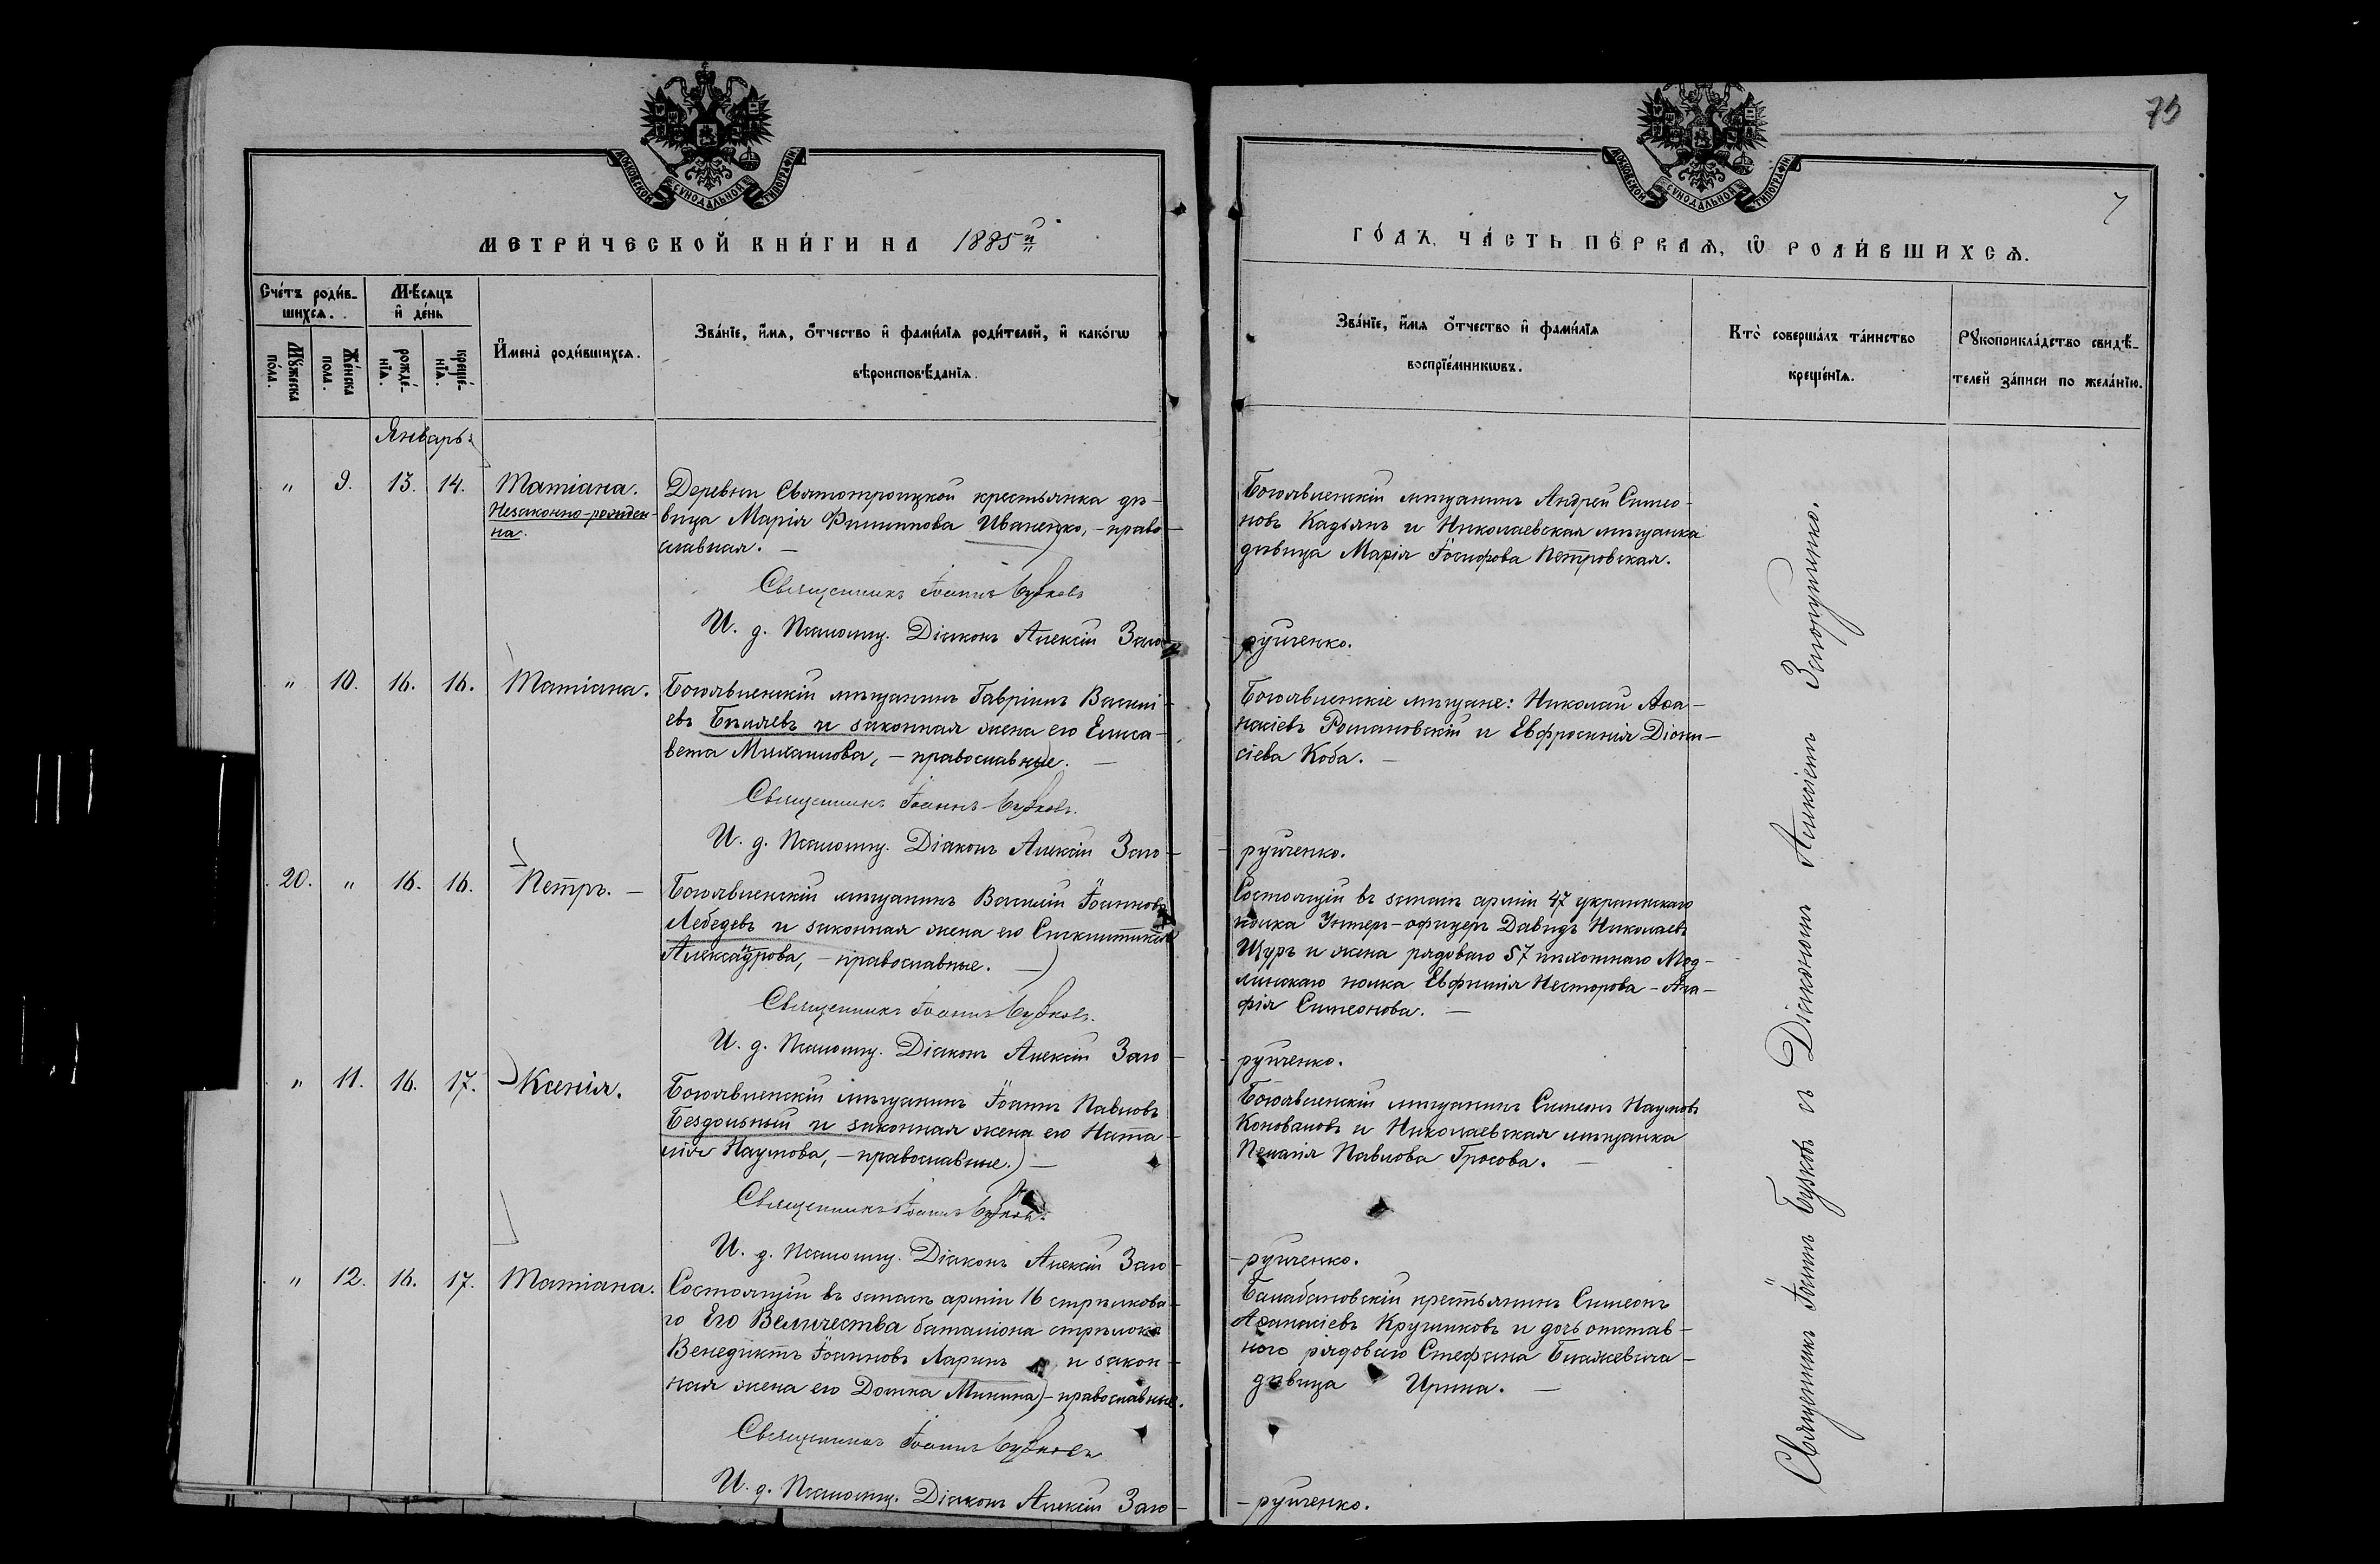 75
7
МОСКОВСКОЙ СѴНОДАЛЬНОЙ ТИПОГРАФІИ
МОСКОВСКОЙ СѴНОДАЛЬНОЙ ТИПОГРАФІИ
МЕТРИ́ЧЕСКОЙ КНИ́ГИ НА 1885й
ГО́ДЪ, ЧА́СТЬ ПЕ́РВАѦ, Ѽ РОДИ́ВШИХСѦ.
Сче́тъ роди́в-
шихсѧ.
Мꙋ́жеска
по́ла.
Же́нска
по́ла.
Мѣ́сѧцъ
и҆ де́нь
рожде́-
нїѧ.
креще́-
нїѧ.
И҆мена̀ роди́вшихсѧ.
Зва́нїе, и҆́мѧ, ѻ҆́тчество и҆ фами́лїѧ роди́телей, и҆ како́гѡ
вѣроисповѣ́данїѧ.
Зва́нїе, и҆́мѧ ѻ҆́тчество и҆ фами́лїѧ
воспрїе́мникѡвъ.
Кто̀ соверша́лъ та́инство
креще́нїѧ.
Рꙋкоприкла́дство свидѣ́-
телей за́писи по жела́нїю.
Январь:
" 9. 13. 14. Татіана.
Незаконно-рожден-
на.
Деревни Святотроицкой крестьянка дѣ-
вица Марія Филиппова Иваненко, - право-
славная. -
Священникъ Іоаннъ Бузковъ
И. д. Псаломщ. Діаконъ Алексій Заго-
Богоявленскій мѣщанинъ Андрей Симео-
новъ Кадьянъ и Николаевская мѣщанка
дѣвица Марія Іосифова Петровская.
рупченко.
" 10. 16. 16. Татіана.
Богоявленскій мѣщанинъ Гавріилъ Василі-
евъ Бѣляевъ и законная жена его Елиса-
вета Михаилова, - православные. -
Священникъ Іоаннъ Бузковъ.
И. д. Псаломщ. Діаконъ Алексій Заго-
Богоявленскіе мѣщане: Николай Аѳа-
насіевъ Романовскій и Евфросинія Діони-
сіева Коба. -
рупченко.
20. " 16. 16. Петръ. -
Богоявленскій мѣщанинъ Василій Іоанновъ
Лебедевъ и законная жена его Синклитикія
Александрова, - православные. -
Священникъ Іоаннъ Бузковъ.
И. д. Псаломщ. Діаконъ Алексій Заго-
Состоящій въ запасѣ арміи 47 украинскаго
полка Унтеръ-офицеръ Давидъ Николаевъ
Щуръ и жена рядоваго 57 пѣхотнаго Мод-
линскаго полка Евфимія Несторова - Ага-
фія Симеонова. -
рупченко.
" 11. 16. 17. Ксенія.
Богоявленскій мѣщанинъ Іоаннъ Павловъ
Бездольный и законная жена его Ната-
лія Наумова, - православные. -
Священникъ Іоаннъ Бузковъ.
И. д. Псаломщ. Діаконъ Алексій Заго-
Богоявленскій мѣщанинъ Симеонъ Наумовъ
Коноваловъ и Николаевская мѣщанка
Пелагія Павлова Гросова. -
- рупченко.
" 12. 16. 17. Татіана.
Состоящій въ запасѣ арміи 16 стрѣлкова-
го Его Величества баталіона стрѣлокъ
Венедиктъ Іоанновъ Ларинъ и закон-
ная жена его Домна Микина - православные.
Священникъ Іоаннъ Бузковъ
И. д. Псаломщ. Діаконъ Алексій Заго-
Балабановскій крестьянинъ Симеонъ
Аѳанасіевъ Кручиковъ и дочь отстав-
ного рядоваго Стефана Блажевича -
дѣвица Ирина. -
- рупченко.
Священникъ Іоаннъ Бузковъ съ Діакономъ Алексіемъ Загорупченко.